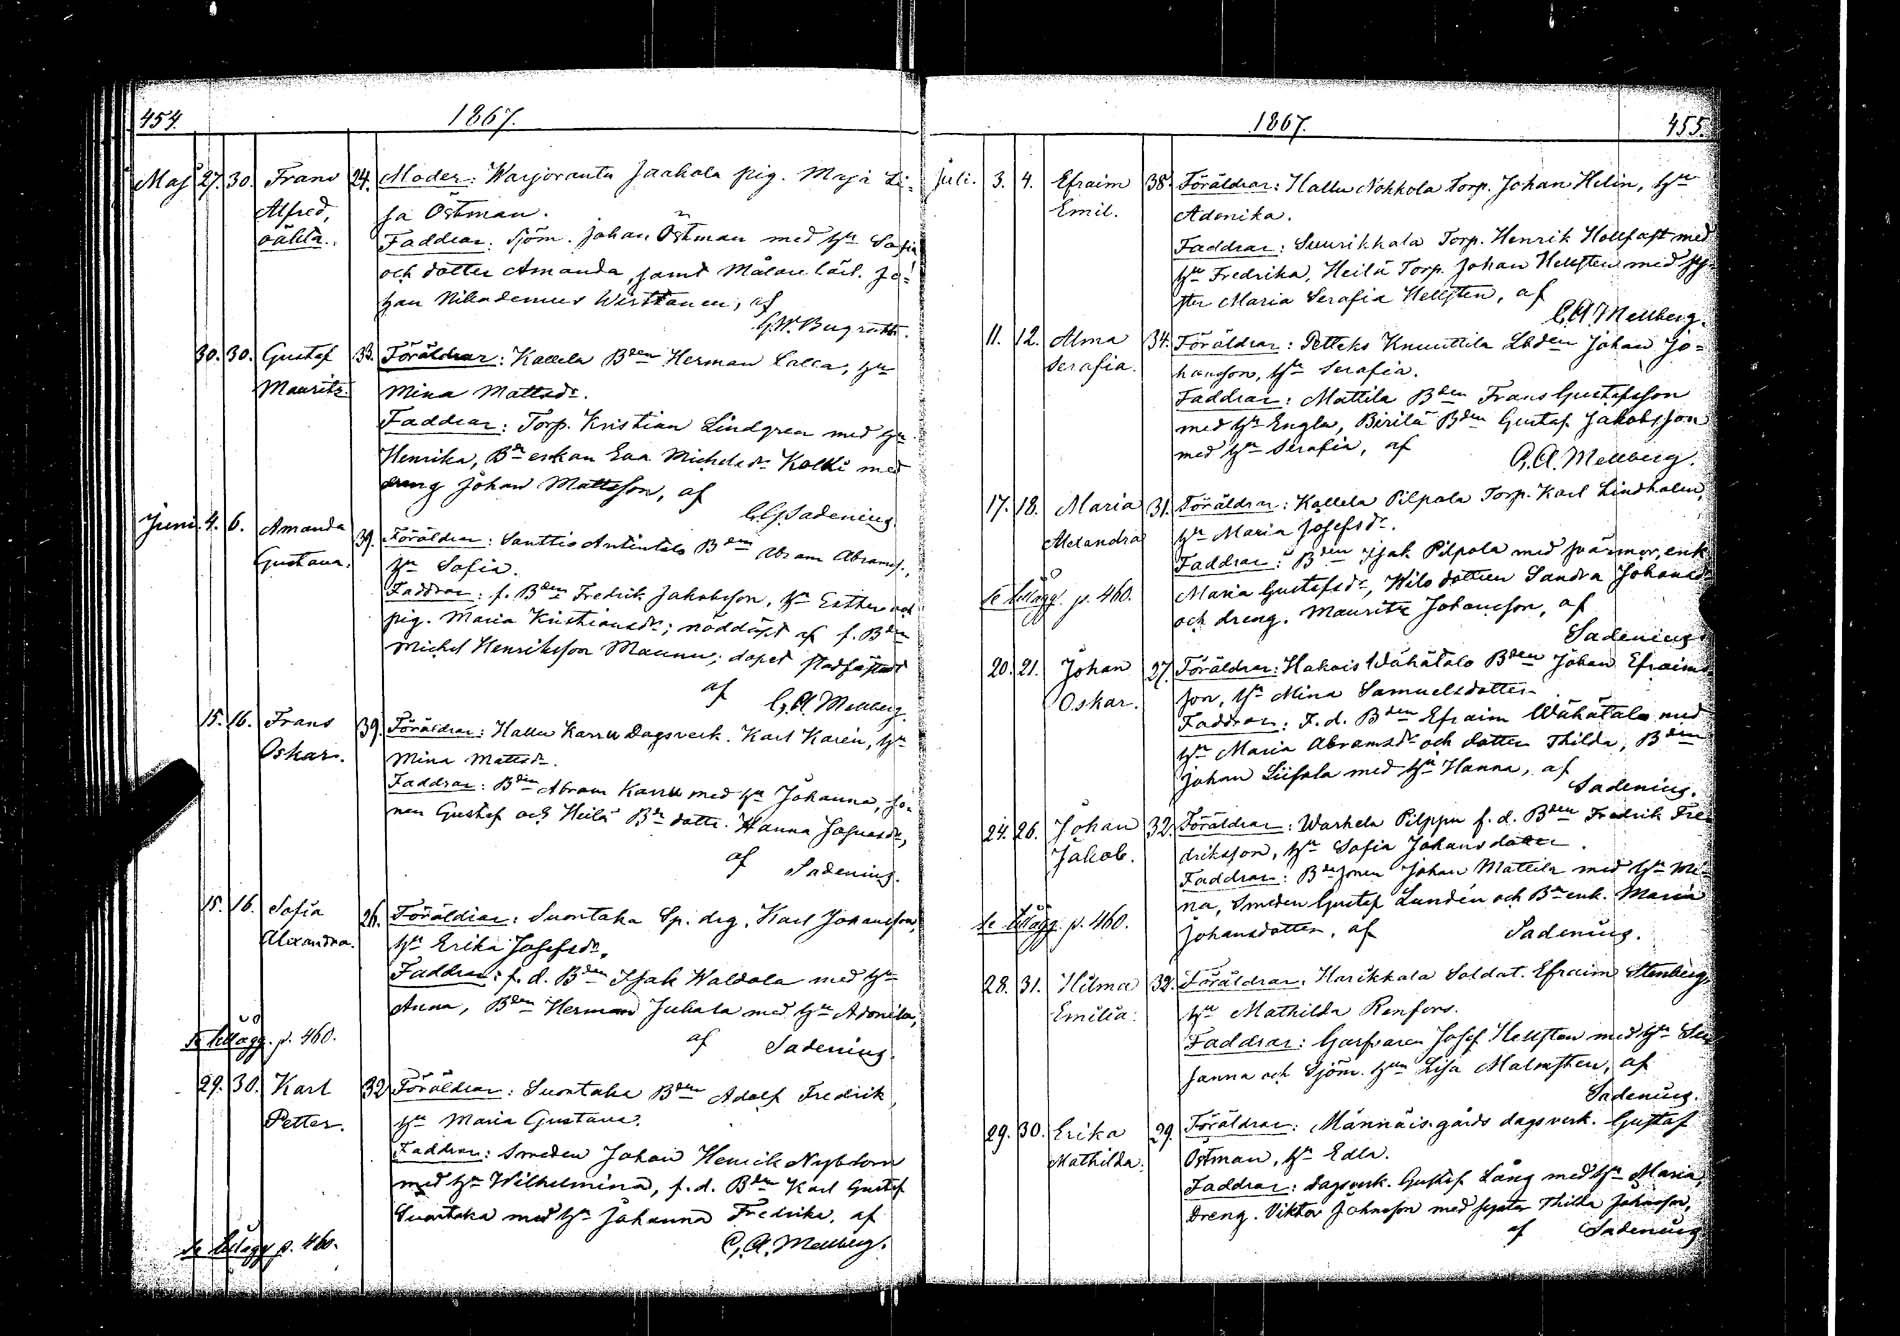 454. 1867.
Maj 27. 30. Frans 24. Moder: Warjoranta Jaakola pig. Maja Li-
Alfred, sa Östman.
oäkta. Faddrar: Sjöm. Johan Östman med hu Sofia
och dotter Amanda, samt Målare lärl. Jo-
han Nikodemus Wirtanen, af
30. 30. Gustaf 33. Föräldrar: Kallela Bden Herman Calla, hu
Mauritz. Mina Mattsdr.
Faddrar: Torp. Kristian Lindgren med hu
Henrika, Bdeenkan Eva Michelsdr Kolkki med
dräng Johan Mattsson, af
Sadenius.
Juni. 4. 6. Amanda 39. Föräldrar: Santtis Anttintalo Bden Abram Abramss.,
Gustava. hu Sofia.
Faddrar: f. Bden Fredrik Jakobsson, hu Esther och
pig. Maria Kristiansdr; nöddöpt af f. Bden
Michel Henriksson Maunu; dopet stadfästadt
af C. A. Mellberg.
15. 16. Frans 39. Föräldrar: Hallu Karru Dagsverk. Karl Karén, hu
Oskar. Mina Mattsdr.
Faddrar: Bden Abram Karru med hu Johanna, so-
nen Gustaf och Heilä Bde dotter Hanna Josuasdr,
af Sadenius.
15. 16. Sofia 26. Föräldrar: Suontaka Sp. drg. Karl Johansson,
Alexandra. hu Erika Josefsdr.
Faddrar: f. d. Bden Isak Waldola med hu
Anna, Bden Herman Juhala med hu Adonika,
af Sadenius.
Se tillägg. p. 460.
29. 30. Karl 32. Föräldrar: Suontaka Bden Adolf Fredrik,
Petter. hu Maria Gustava.
Faddrar: Smeden Johan Henrik Nyblom
med hu Wilhelmina, f. d. Bden Karl Gustaf
Suontaka med hu Johanna Fredrika, af
C. A. Mellberg.
Se tillägg p. 460.
1867. 455.
Juli. 3. 4. Efraim 38. Föräldrar: Hallu Nokkola Torp. Johan Helin, hu
Emil. Adonika.
Faddrar: Suurikkala Torp. Henrik Hollfast med
hu Fredrika, Heilä Torp. Johan Hellsten med sy-
ster Maria Serafia Hellsten, af
C. A. Mellberg.
11. 12. Alma 34. Föräldrar: Petteks Knuuttila Lbden Johan Jo-
Serafia. hansson, hu Serafia.
Faddrar: Mattila Bden Frans Gustafsson
med hu Engla, Birilä Bden Gustaf Jakobsson
med hu Serafia, af
C. A. Mellberg.
17. 18. Maria 31. Föräldrar: Kallela Pilpola Torp. Karl Lindholm,
Alexandra hu Maria Josefsdr.
Faddrar: Bden Isak Pilpola med svärmor, enk.
Se tillägg. p. 460. Maria Gustafsdr, Wilo dottren Sandra Johansdr
och dreng. Mauritz Johansson, af
Sadenius.
20. 21. Johan 27. Föräldrar: Hakois Wähätalo Bden Johan Efraims-
Oskar. son, hu Mina Samuelsdotter.
Faddrar: F. d. Bden Efraim Wähätalo med
hu Maria Abramsdr och dotter Thilda, Bden
Johan Siifola med hu Hanna, af
Sadenius.
24. 26. Johan 32. Föräldrar: Warhela Pilppu f. d. Bden Fredrik Fre-
Jakob. driksson, hu Sofia Johansdotter.
Faddrar: Bdesonen Johan Mattila med hu Mi-
na, Smeden Gustaf Lundén och Bdeenk. Maria
Se tillägg. p. 460. Johansdotter, af Sadenius.
28. 31. Hilma 32. Föräldrar: Harikkala Soldat. Efraim Stenberg,
Emilia. hu Mathilda Renfors.
Faddrar: Garfvaren Josef Hellsten med hu Su-
sanna och Sjöm. hun Lisa Malmsten, af
Sadenius.
29. 30. Erika 29. Föräldrar: Männäis gårds dagsverk. Gustaf
Mathilda. Östman, hu Edla.
Faddrar: Dagsverk. Gustaf Lång med hu Maria,
Dreng. Viktor Johnsson med syster Thilda Johnsson,
af Sadenius